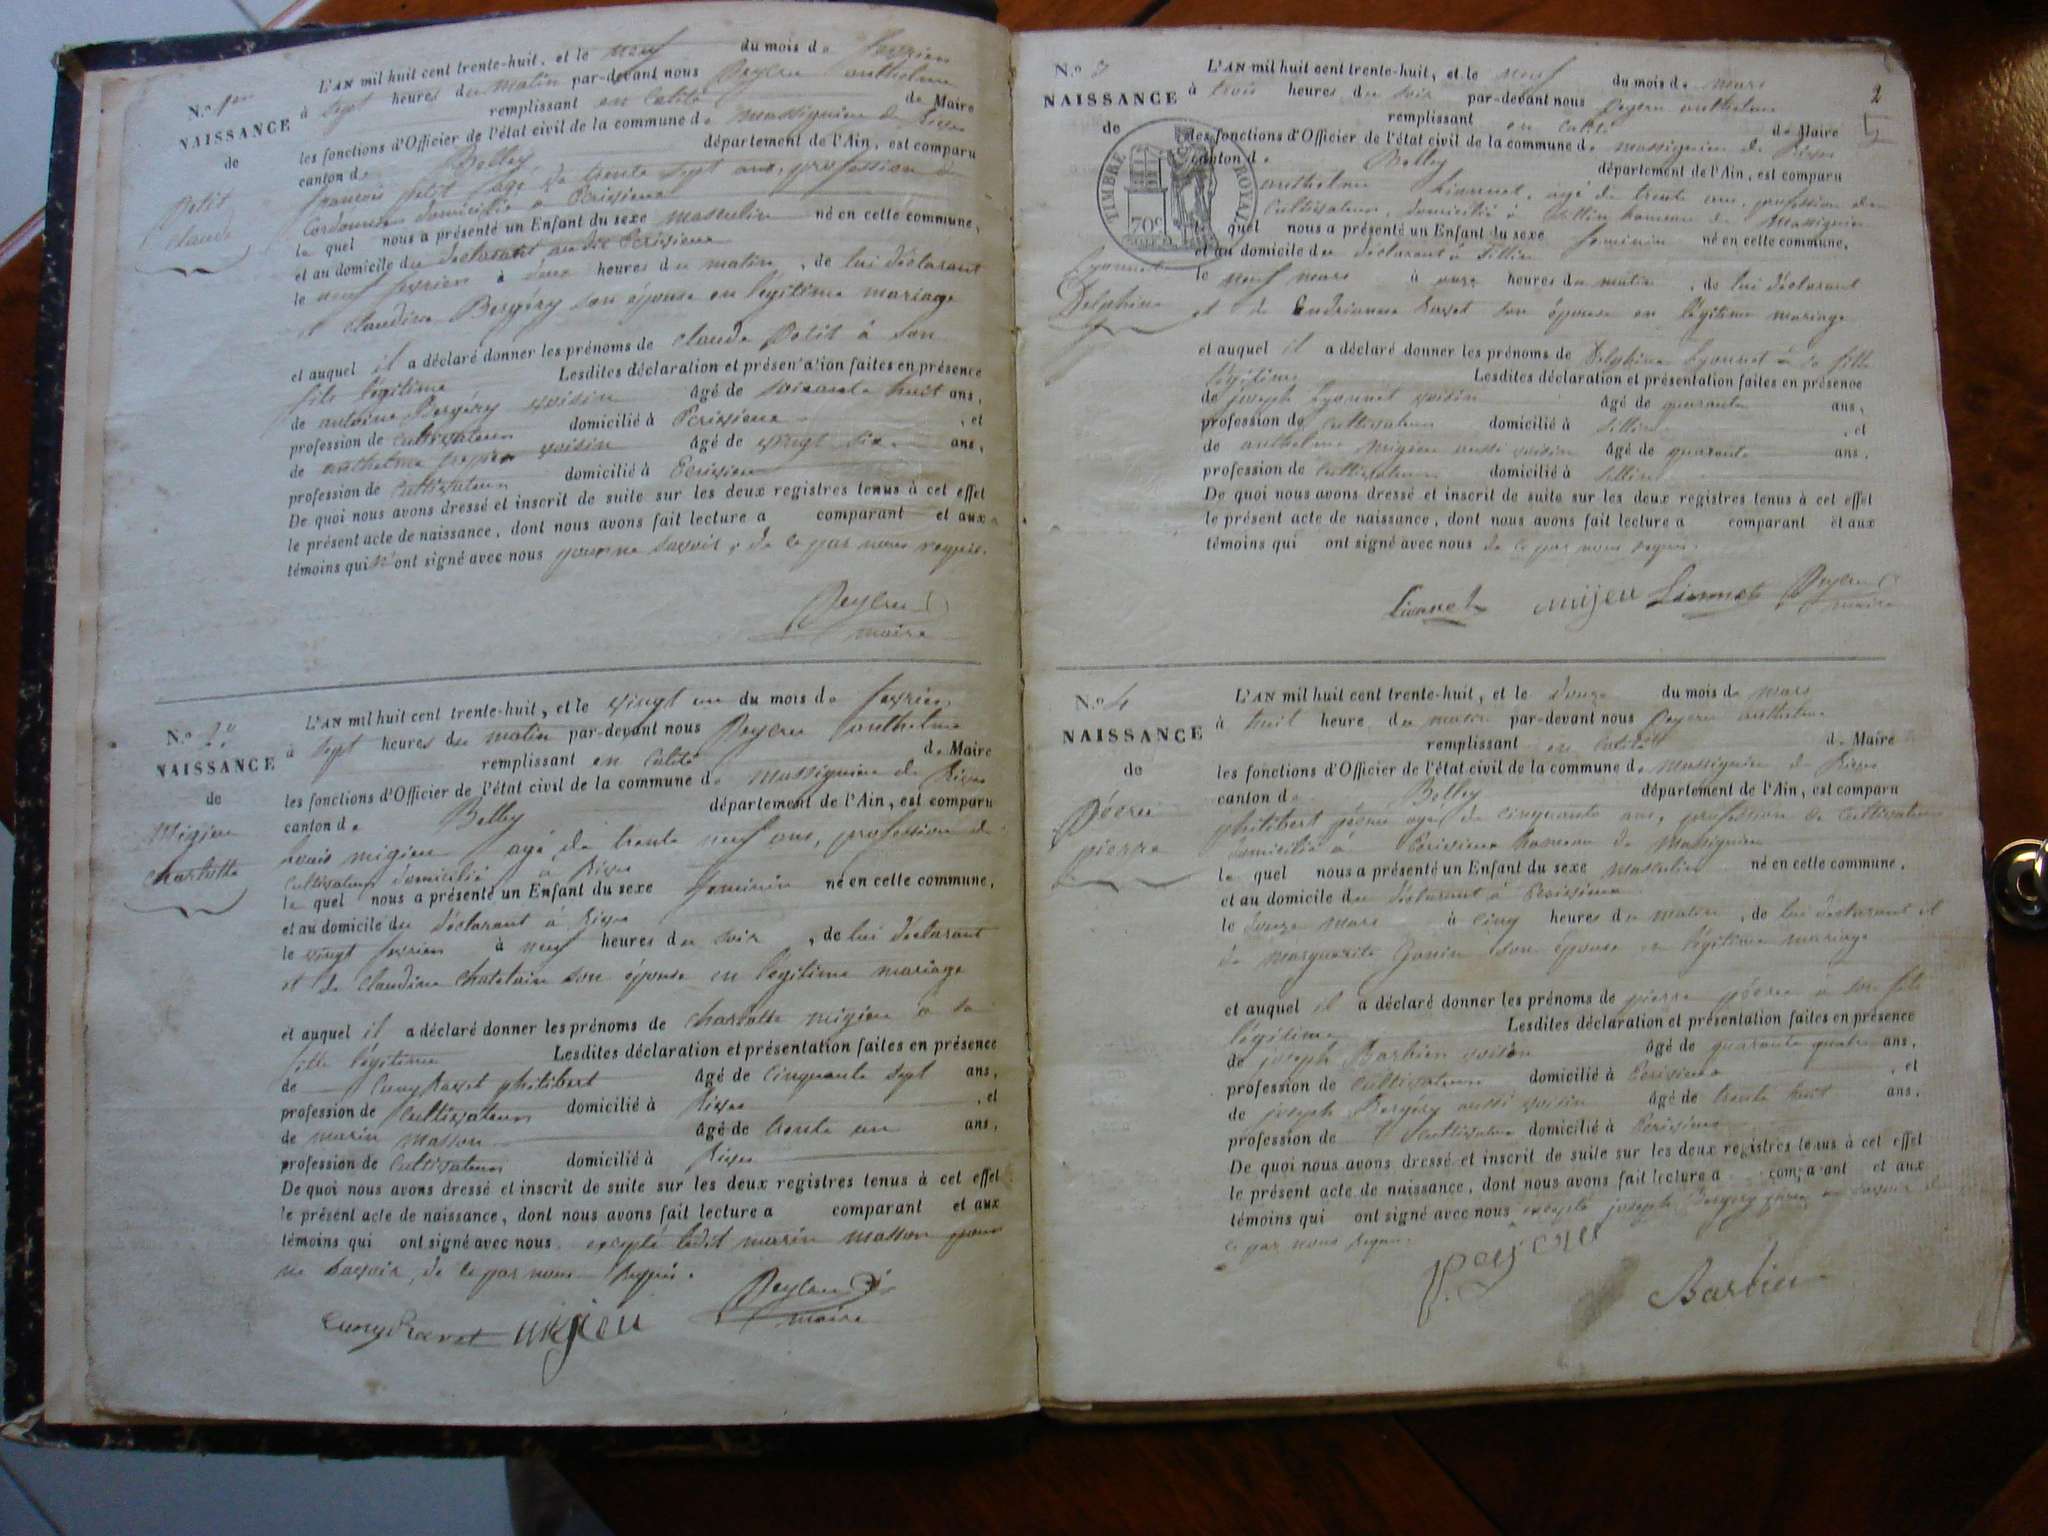 N.o 1er
NAISSANCE
de
Petit
Claude
L'AN mil huit cent trente-huit, et le neuf du mois de fevrier
à sept heures du matin par-devant nous Peyern anthelme
remplissant en calité de Maire
les fonctions d'Officier de l'état civil de la commune de massignieu de Rives
canton de Belley département de l'Ain, est comparu
françois petit agé de trente sept ans, profession de
Cordonnier domicilié a Ecrivieux
le quel nous a présenté un Enfant du sexe masculin né en cette commune,
et au domicile du déclarant audit Ecrivieux
le neuf fevrier à deux heures du matin, de lui déclarant
et claudine Bergéry son épouse en légitime mariage
et auquel il a déclaré donner les prénoms de claude Petit à son
fils légitime Lesdites déclaration et présentation faites en présence
de antoine Bergéry voisin âgé de soixante huit ans,
profession de cultivateur domicilié à Ecrivieux, et
de anthelme voisin âgé de vingt six ans,
profession de Cultivateur domicilié à Ecrivieux
De quoi nous avons dressé et inscrit de suite sur les deux registres tenus à cet effet
le présent acte de naissance, dont nous avons fait lecture a comparant et aux
témoins qui n'ont signé avec nous pour ne savoir, de ce par nous requis.
maire
N.o 2
NAISSANCE
de
Migieu
charlotte
L'AN mil huit cent trente-huit, et le vingt un du mois de fevrier
à sept heures du matin par-devant nous Peyern anthelme
remplissant en calité de Maire
les fonctions d'Officier de l'état civil de la commune de massignieu de Rives
canton de Belley département de l'Ain, est comparu
louis migieu agé de trente neuf ans, profession de
Cultivateur domicilié à Rives
le quel nous a présenté un Enfant du sexe feminin né en cette commune,
et au domicile du déclarant à Rives
le vingt fevrier à neuf heures du soir, de lui déclarant
et de claudine chatelain son épouse en légitime mariage
et auquel il a déclaré donner les prénoms de charlotte migieu a sa
fille légitime Lesdites déclaration et présentation faites en présence
de Cuny Ravet philibert âgé de cinquante sept ans,
profession de Cultivateur domicilié à Rives, et
de marin masson âgé de trente un ans,
profession de Cultivateur domicilié à Rives
De quoi nous avons dressé et inscrit de suite sur les deux registres tenus à cet effet
le présent acte de naissance, dont nous avons fait lecture a comparant et aux
témoins qui ont signé avec nous excepté ledit marin masson pour
ne savoir, de ce par nous requis.
maire
migieu
N.o 3
NAISSANCE
de
Lyonnet
Delphine
2
TIMBRE ROYAL
70c
L'AN mil huit cent trente-huit, et le neuf du mois de mars
à trois heures du soir par-devant nous Peyern anthelme
remplissant en calité de Maire
les fonctions d'Officier de l'état civil de la commune de massignieu de Rives
canton de Belley département de l'Ain, est comparu
anthelme Lionnet, agé de trente ans, profession de
Cultivateur, domicilié à Sillin hameau de Massignieu
le quel nous a présenté un Enfant du sexe feminin né en cette commune,
et au domicile du déclarant à Sillin
le neuf mars à onze heures du matin, de lui déclarant
et de Ravet son épouse en légitime mariage
et auquel il a déclaré donner les prénoms de Delphine Lyonnet à sa fille
légitime Lesdites déclaration et présentation faites en présence
de joseph Lyonnet voisin âgé de quarante ans,
profession de Cultivateur domicilié à Sillin, et
de anthelme migieu aussi voisin âgé de quarante ans,
profession de Cultivateur domicilié à Sillin
De quoi nous avons dressé et inscrit de suite sur les deux registres tenus à cet effet
le présent acte de naissance, dont nous avons fait lecture a comparant et aux
témoins qui ont signé avec nous de ce par nous requis.
Lionnet mijeu Lionnet
maire
N.o 4
NAISSANCE
de
pierre
L'AN mil huit cent trente-huit, et le douze du mois de mars
à huit heure du matin par-devant nous Peyern anthelme
remplissant en calité de Maire
les fonctions d'Officier de l'état civil de la commune de massignieu de Rives
canton de Belley département de l'Ain, est comparu
philibert agé de cinquante ans, profession de Cultivateur
domicilié à Ecrivieux hameau de Massignieu
le quel nous a présenté un Enfant du sexe masculin né en cette commune,
et au domicile du déclarant à Ecrivieux
le douze mars à cinq heures du matin, de lui déclarant et
de marguerite Janin son épouse en légitime mariage
et auquel il a déclaré donner les prénoms de pierre à son fils
légitime Lesdites déclaration et présentation faites en présence
de joseph Barbier voisin âgé de quarante quatre ans,
profession de Cultivateur domicilié à Ecrivieux, et
de joseph Bergéry aussi voisin âgé de trente huit ans,
profession de Cultivateur domicilié à Ecrivieux
De quoi nous avons dressé et inscrit de suite sur les deux registres tenus à cet effet
le présent acte de naissance, dont nous avons fait lecture a comparant et aux
témoins qui ont signé avec nous excepté joseph Bergéry pour ne savoir de
ce par nous requis.
Barbier